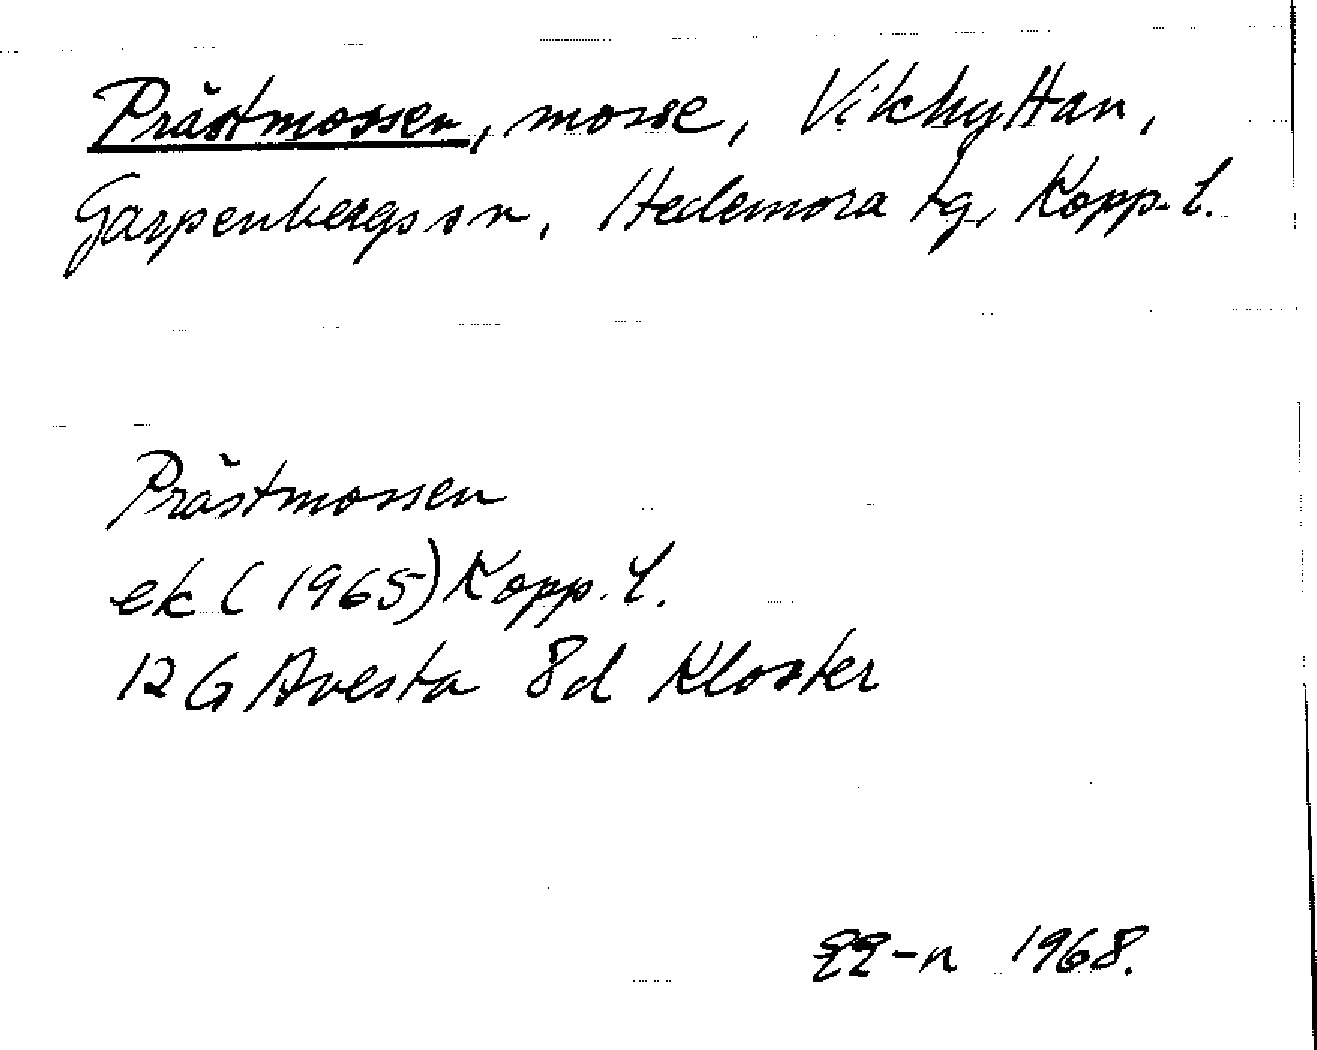 Prästmossen, mosse, Vikhyttan,
Garpenbergs sn, Hedemora tg, Kopp. l.
Prästmossen
ek (1965) Kopp. l.
12 G Avesta 8d Kloster
1968.